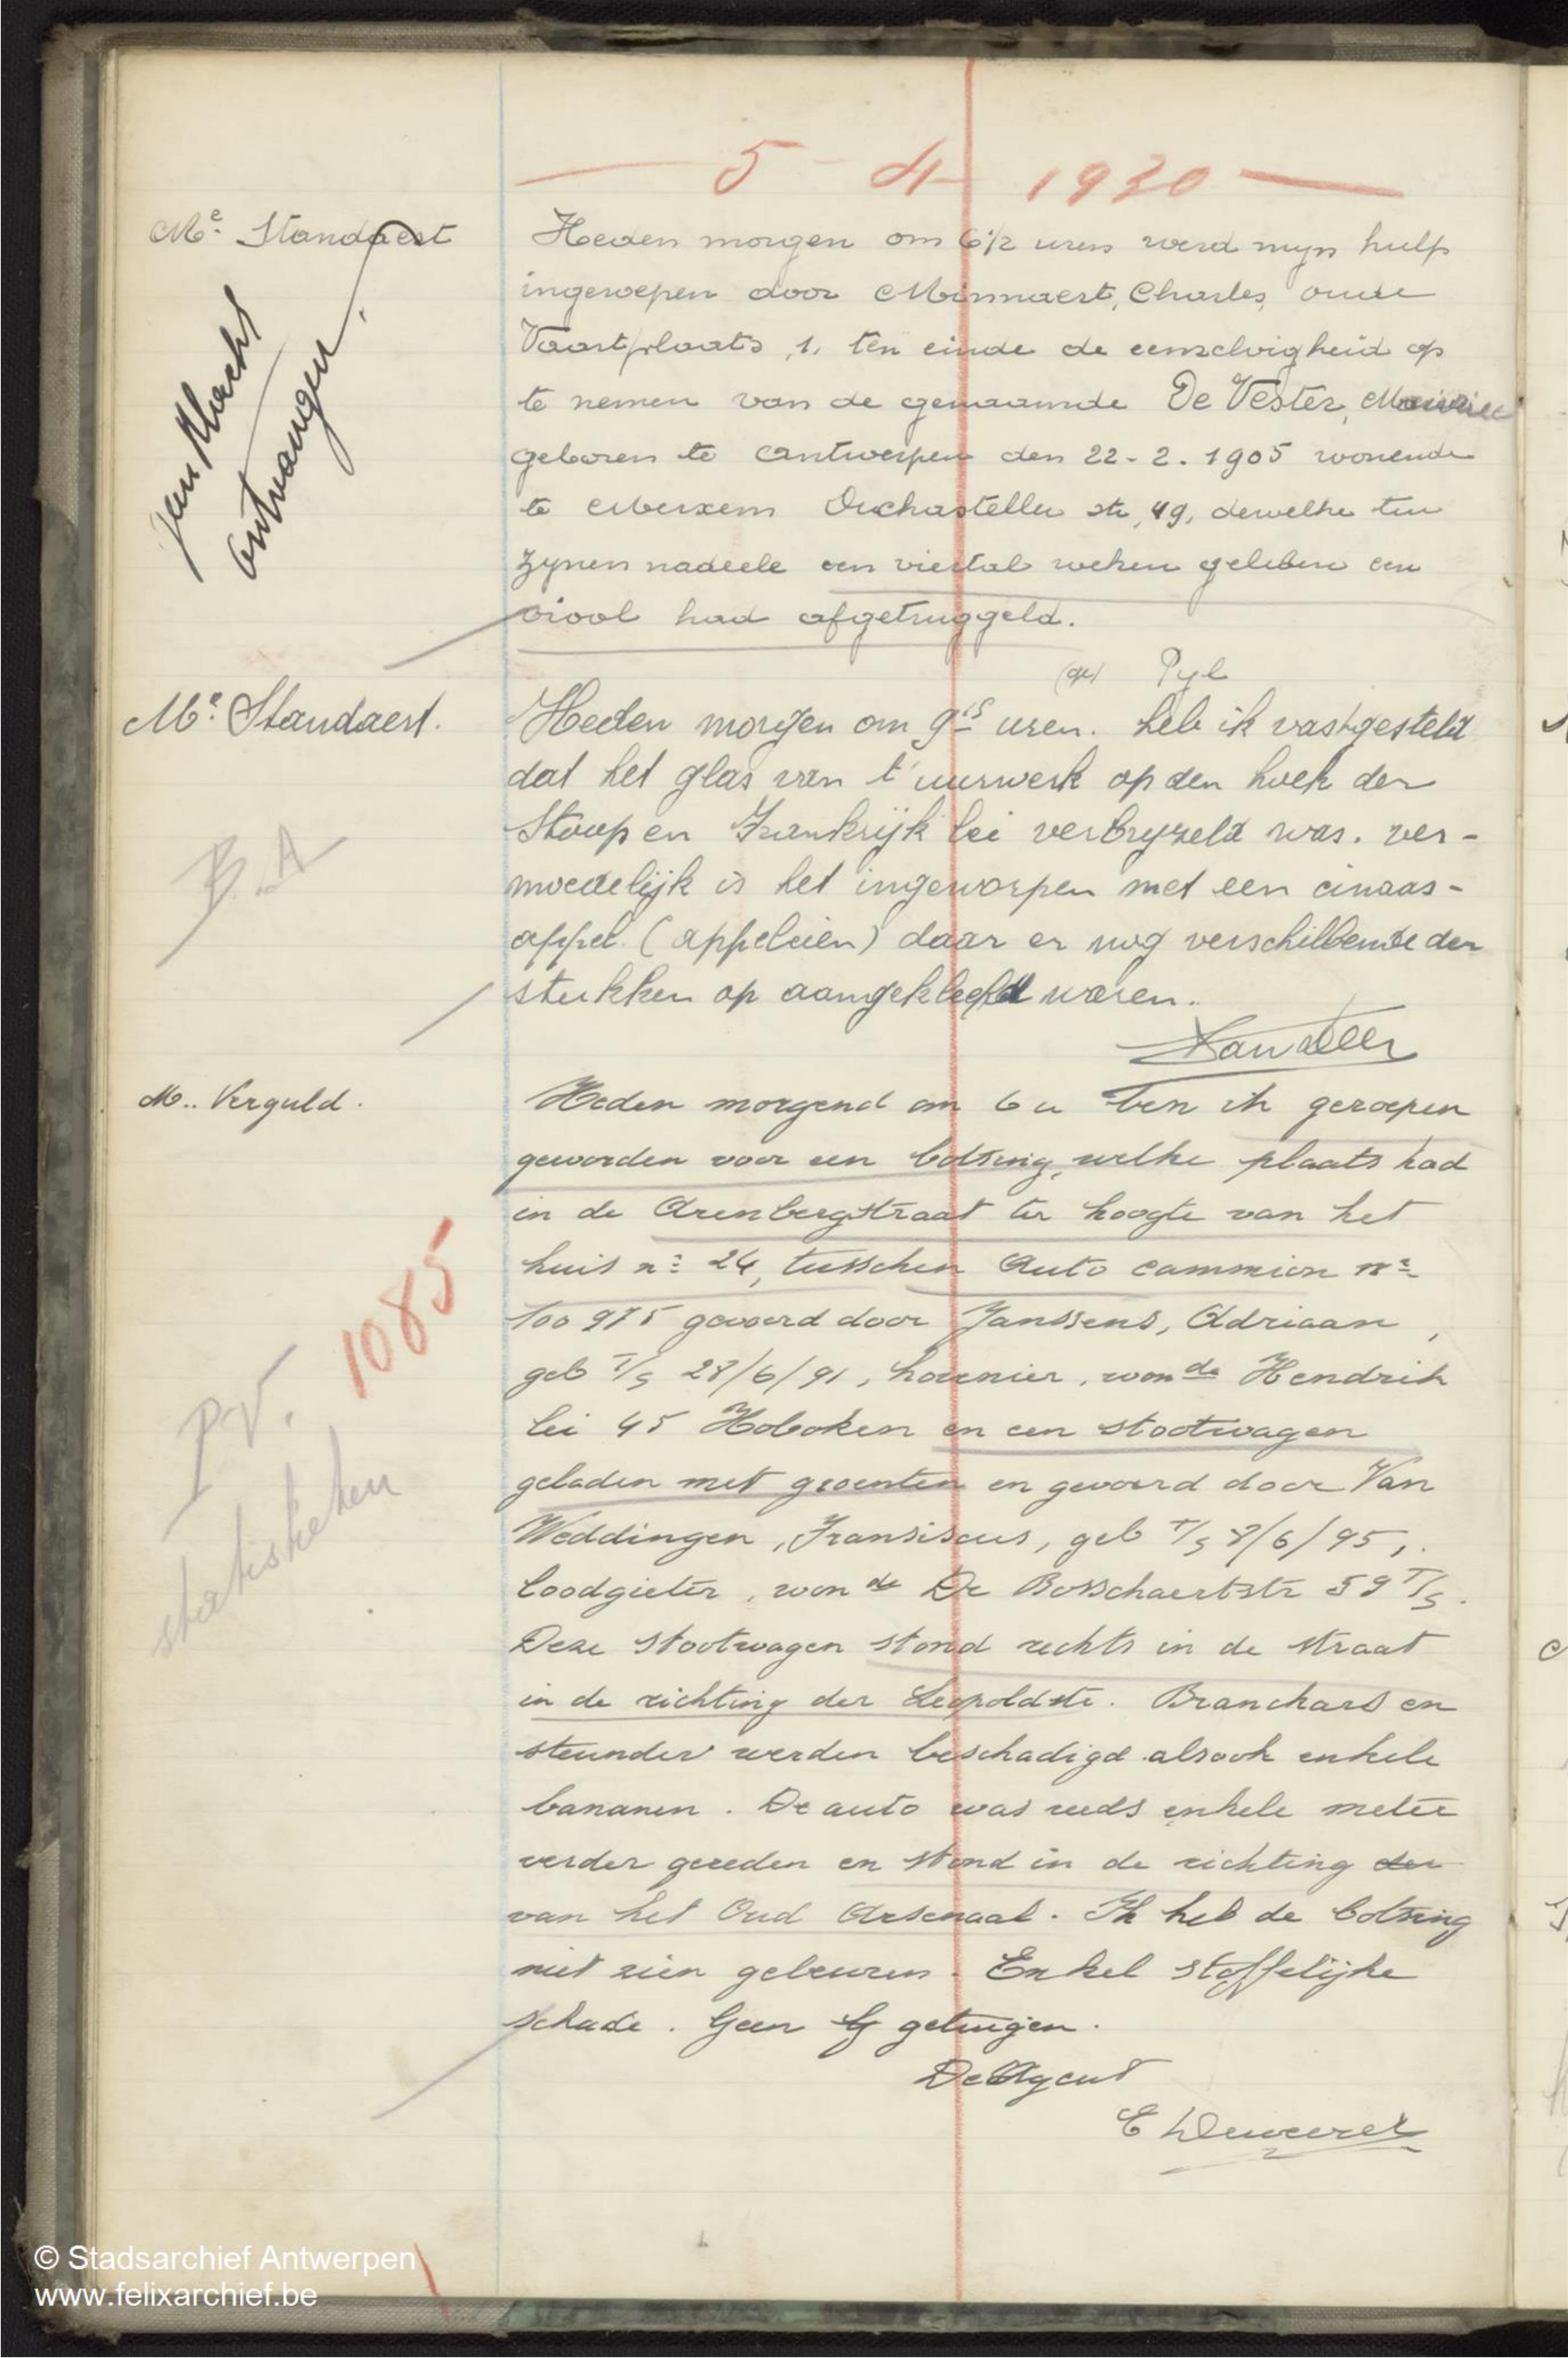 5 - 4 1930
Me. Standaert
Heden morgen om 6 1/2 uren werd mijn hulp
ingeroepen door Minnaert, Charles, oude
Vaartplaats, 1. ten einde de eenzelvigheid op
te nemen van de genaamde De Vester, Maurice
geboren te Antwerpen den 22-2-1905 wonende
te Merxem Duchastellei str, 49, dewelke ten
zynen nadeele een viertal weken geleden een
viool had afgetruggeld.
ontvangen
(get) Pyl
Me. Standaert.
Heden morgen om 9 15 uren. heb ik vastgesteld
dat het glas van t' uurwerk op den hoek der
Stoop en Frankrijk lei verbryzeld was. ver-
moedelijk is het ingeworpen met een cinaas-
appel. (appelcien) daar er nog verschillende der
stukken op aangekleefd waren.
B.A
M.. Verguld.
Heden morgend om 6 u ben ik geroepen
geworden voor een botsing, welke plaats had
in de Arenbergstraat ter hoogte van het
huis n: 24, tusschen Auto cammion n:
100975 gevoerd door Janssens, Adriaan,
geb T/S 28/6/91, hovenier, won de Hendrik
lei 45 Hoboken en een stootwagen
geladen met groenten en gevoerd door Van
Weddingen, Fransiscus, geb T/S 8/6/95,
loodgieter, won de De Bosschaertstr 59 T/S.
Deze stootwagen stond rechts in de straat
in de richting der Leopoldstr. Branchard en
steunder werden beschadigd alsook enkele
bananen. De auto was reeds enkele meter
verder gereden en stond in de richting der
van het Oud Arsenaal. Ik heb de botsing
niet zien gebeuren. Enkel stoffelijke
schade. Geen G getuigen.
P.V. 1085
statistieken
De Agent
© Stadsarchief Antwerpen
www.felixarchief.be